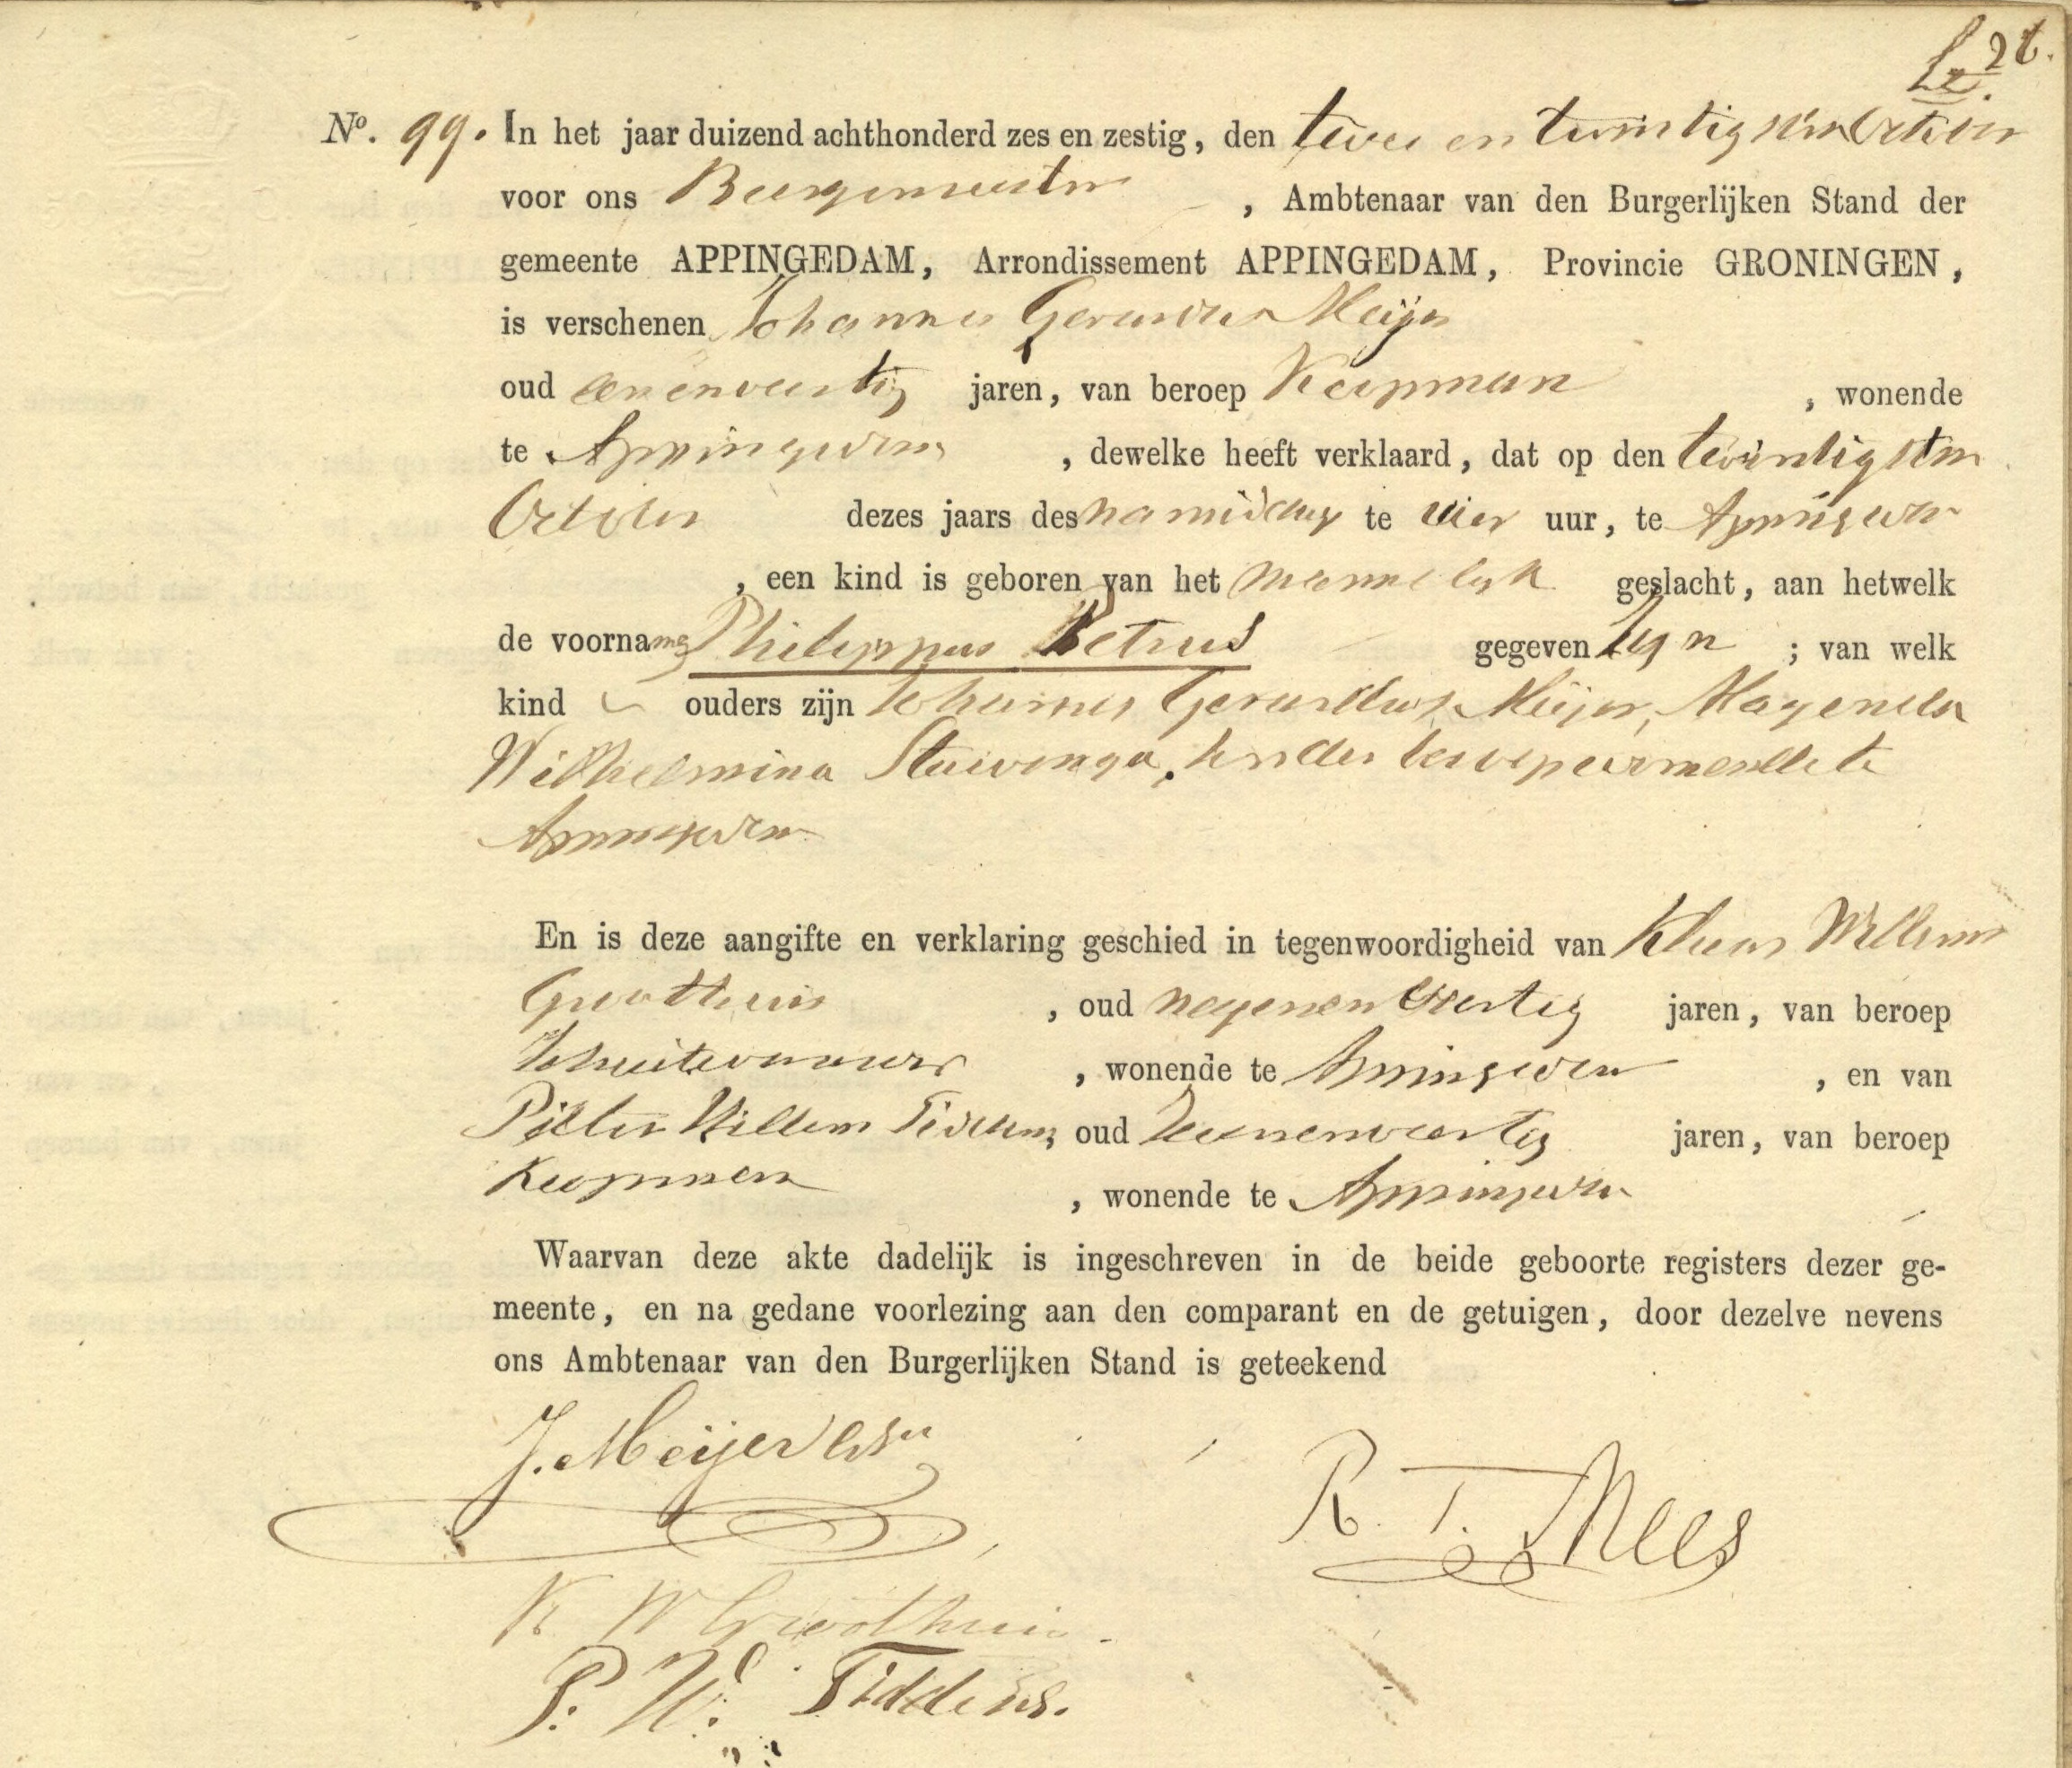 2t.
Nº. 99. In het jaar duizend achthonderd zes en zestig, den twee en twintigsten October
voor ons Burgemeester, Ambtenaar van den Burgerlijken Stand der
gemeente APPINGEDAM, Arrondissement APPINGEDAM, Provincie GRONINGEN,
is verschenen Johannes Gerardus Meijer
oud eenenveertig jaren, van beroep Koopman, wonende
te Appingedam, dewelke heeft verklaard, dat op den twintigsten
October dezes jaars des namiddags te vier uur, te Appingedam
, een kind is geboren van het mannelijk geslacht, aan hetwelk
de voornamen Philippus Petrus gegeven zijn ; van welk
kind ouders zijn Johannes Gerardus Meijer, Magenela
Wilhelmina Stuivenga, zonder beroep, te
Appingedam
En is deze aangifte en verklaring geschied in tegenwoordigheid van Klaas Willems
Groothuis, oud negenenveertig jaren, van beroep
, wonende te Appingedam, en van
Pieter Willem Tiddens, oud tweeenveertig jaren, van beroep
Koopman, wonende te Appingedam
Waarvan deze akte dadelijk is ingeschreven in de beide geboorte registers dezer ge-
meente, en na gedane voorlezing aan den comparant en de getuigen, door dezelve nevens
ons Ambtenaar van den Burgerlijken Stand is geteekend
J. Meijer
R. T. Mees
K W Groothuis.
P. W. Tiddens.